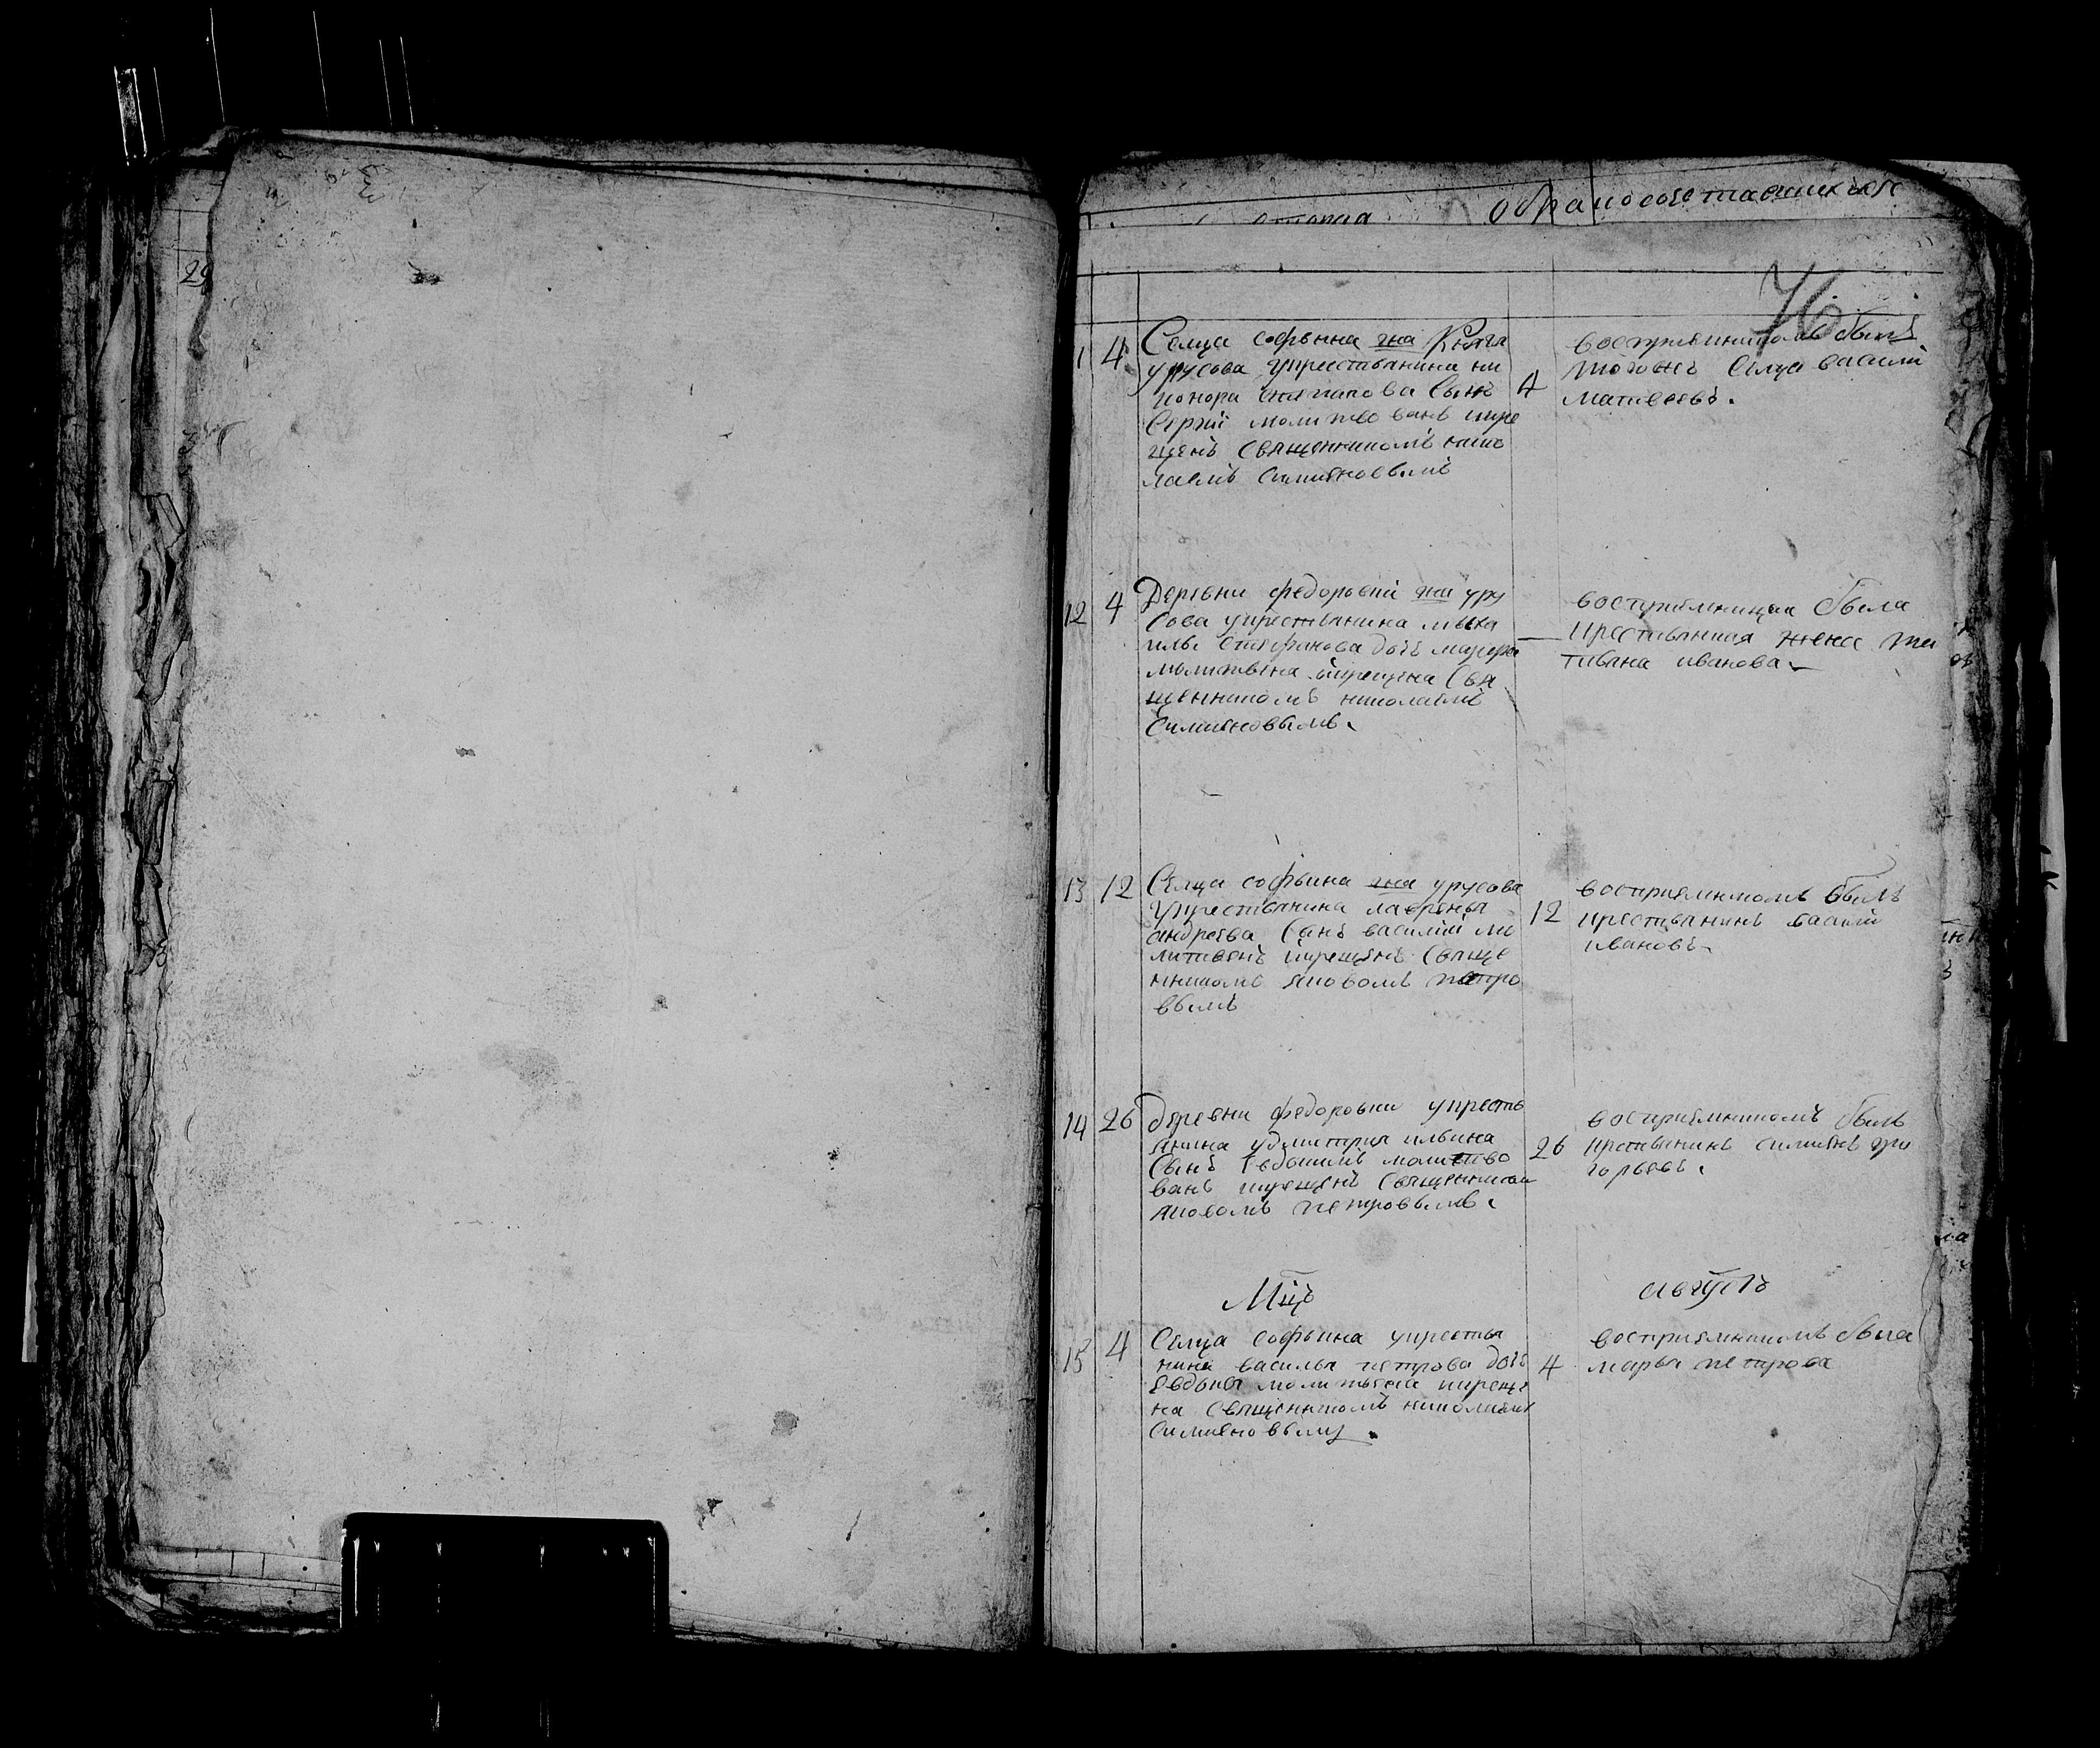 29
вторая о бракосочетавшихся
76
1 4 Селца софьина гна Князя
урусова укрестьянина ни
конора степанова Сынъ
Сергiй молитвованъ икре
щенъ Священникомъ нико
лаемъ Симионовымъ
4 восприемникомъ былъ
тогожъ Селца василiй
матвеевъ.
12 4 Деревни федоровки гна уру
сова укрестьянина миха
илы Стефанова дочь
молитвена икрещена Свя
щенникомъ николаемъ
Симионовымъ.
восприемницая была
крестьянская жена
иванова
13 12 Селца софьина гна урусова
Укрестьянина лаврентья
андреева Сынъ василiй мо
литвенъ икрещенъ Свяще
нникомъ яковомъ петро
вымъ
12 восприемникомъ былъ
крестьянинъ василiй
ивановъ
14 26 деревни федоровки укресть
янина удмитрия ильина
Сынъ Евдокимъ молитво
ванъ икрещенъ Священником
яковомъ петровымъ.
26 восприемникомъ былъ
крестьянинъ симионъ гри
горьевъ.
Мцъ августъ
15 4 Селца софьина укрестья
нина василья петрова дочь
Евдокья молитвена икреще
на Священникомъ николаемъ
Симионовымъ.
4 восприемникомъ была
марья петрова